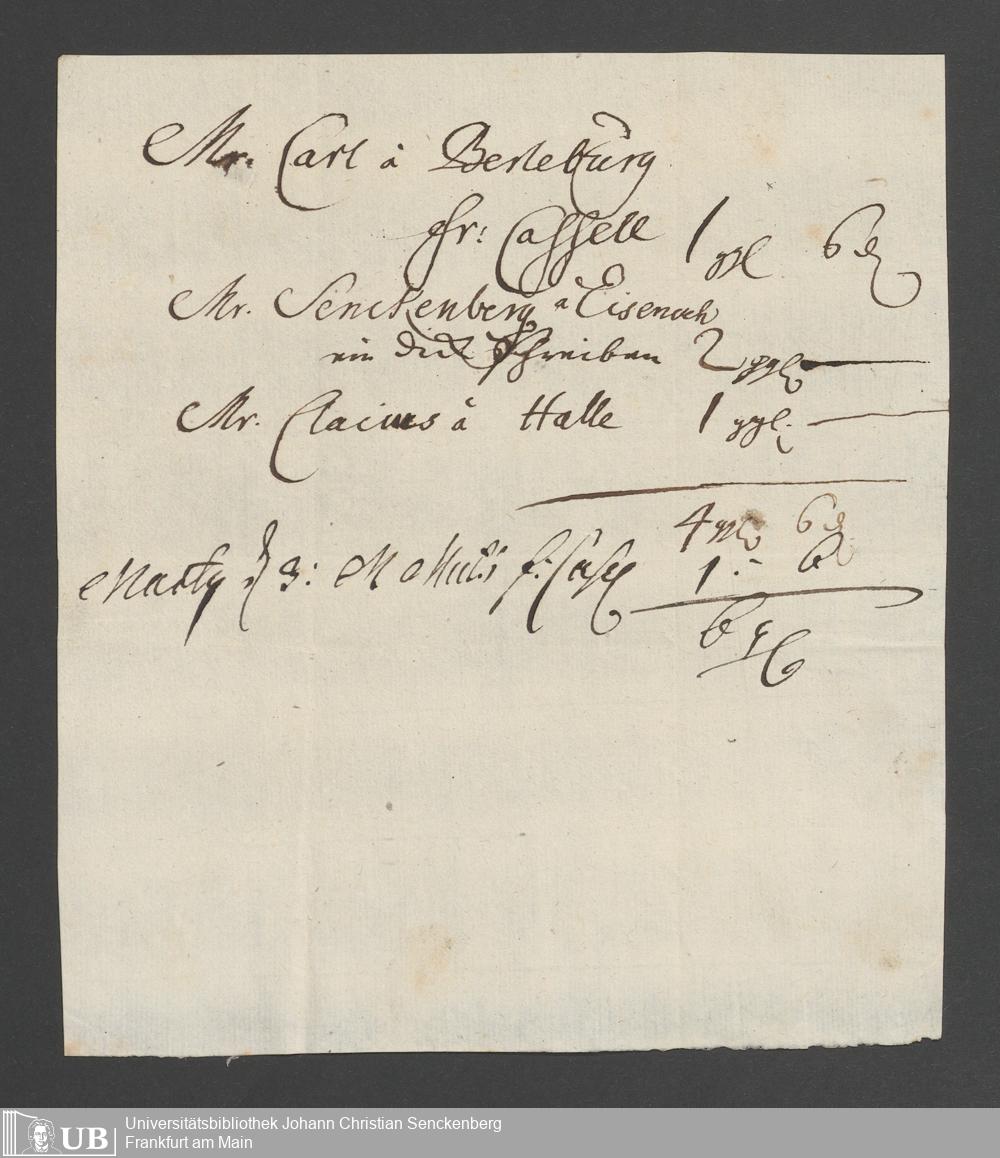 Mr. Carl à Berleburg
fr: Cassell 1 ggl 6 d
Mr. Senckenberg a Eisenach
ein dick schreiben 2 ggl
Mr. Clacius à Halle 1 ggl.
4 ggl 6 d
3: M f: Cassel 1.- 6
6 gl
UB Universitätsbibliothek Johann Christian Senckenberg
Frankfurt am Main